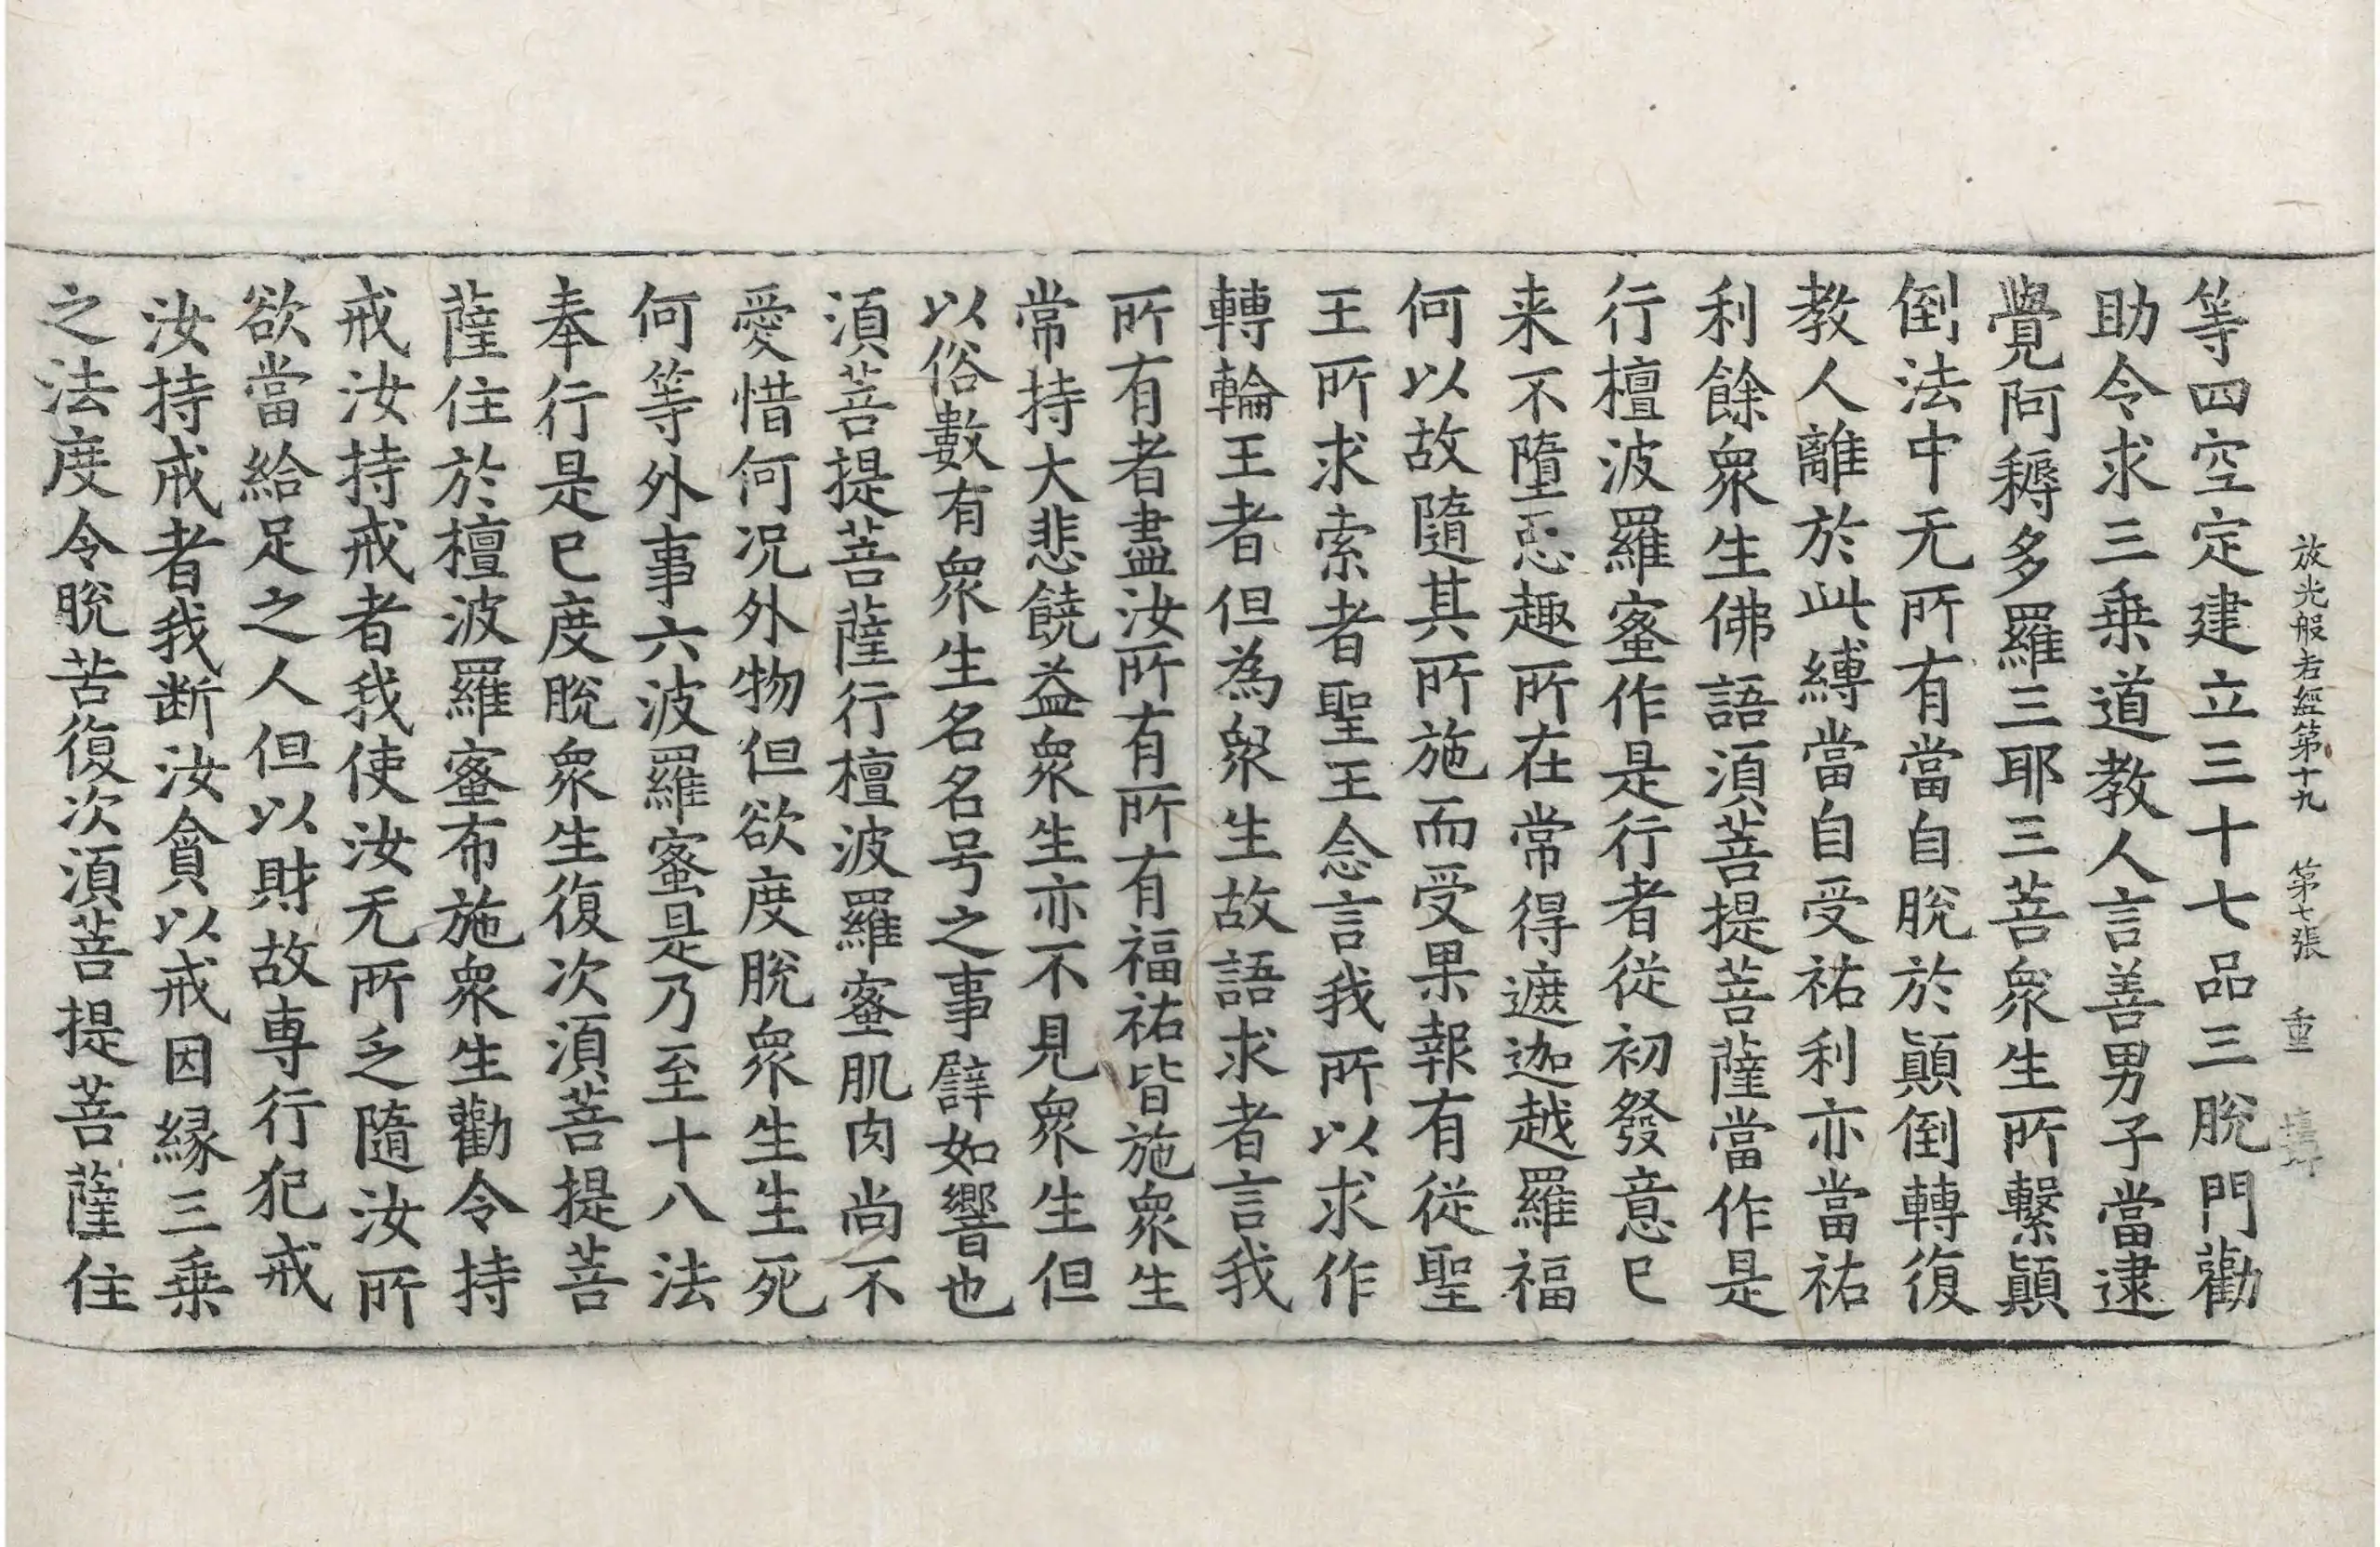 放光般若經第十九 第七張 重
等四空定建立三十七品三脫門勸
助令求三乗道教人言善男子當逮
覺阿耨多羅三耶三菩衆生所繫顛
倒法中无所有當自脫於顛倒轉復
教人離於此縛當自受祐利亦當祐
利餘衆生佛語湏菩提菩薩當作是
行檀波羅蜜作是行者從初發意已
来不墮惡趣所在常得遮迦越羅福
何以故隨其所施而受果報有從聖
王所求索者聖王念言我所以求作
轉輪王者但為衆生故語求者言我
所有者盡汝所有所有福祐皆施衆生
常持大悲饒益衆生亦不見衆生但
以俗數有衆生名名号之事譬如響也
湏菩提菩薩行檀波羅蜜肌肉尚不
愛惜何况外物但欲度脫衆生生死
何等外事六波羅蜜是乃至十八法
奉行是已度脫衆生復次湏菩提菩
薩住於檀波羅蜜布施衆生勸令持
戒汝持戒者我使汝无所乏隨汝所
欲當給足之人但以財故専行犯戒
汝持戒者我断汝貪以戒因縁三乗
之法度令脫苦復次湏菩提菩薩住